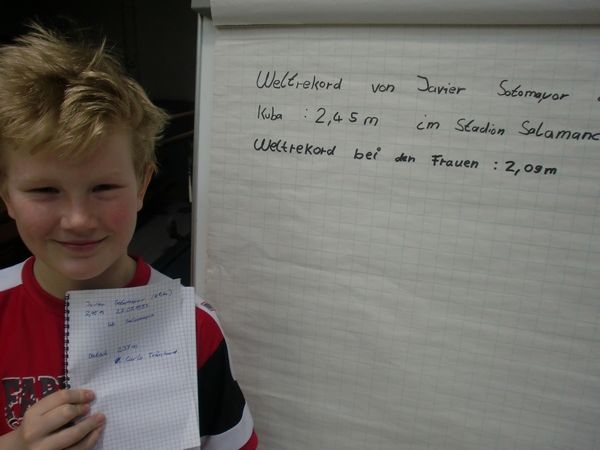 Weltrekord von Javier Sotomayor
Kuba : 2,45 m im Stadion Salamanc
Weltrekord bei den Frauen : 2,09m
Javier Sotomayor (Kuba)
2,45 m 27.07.1993
Salamanca
237m
Carlo Tränhard